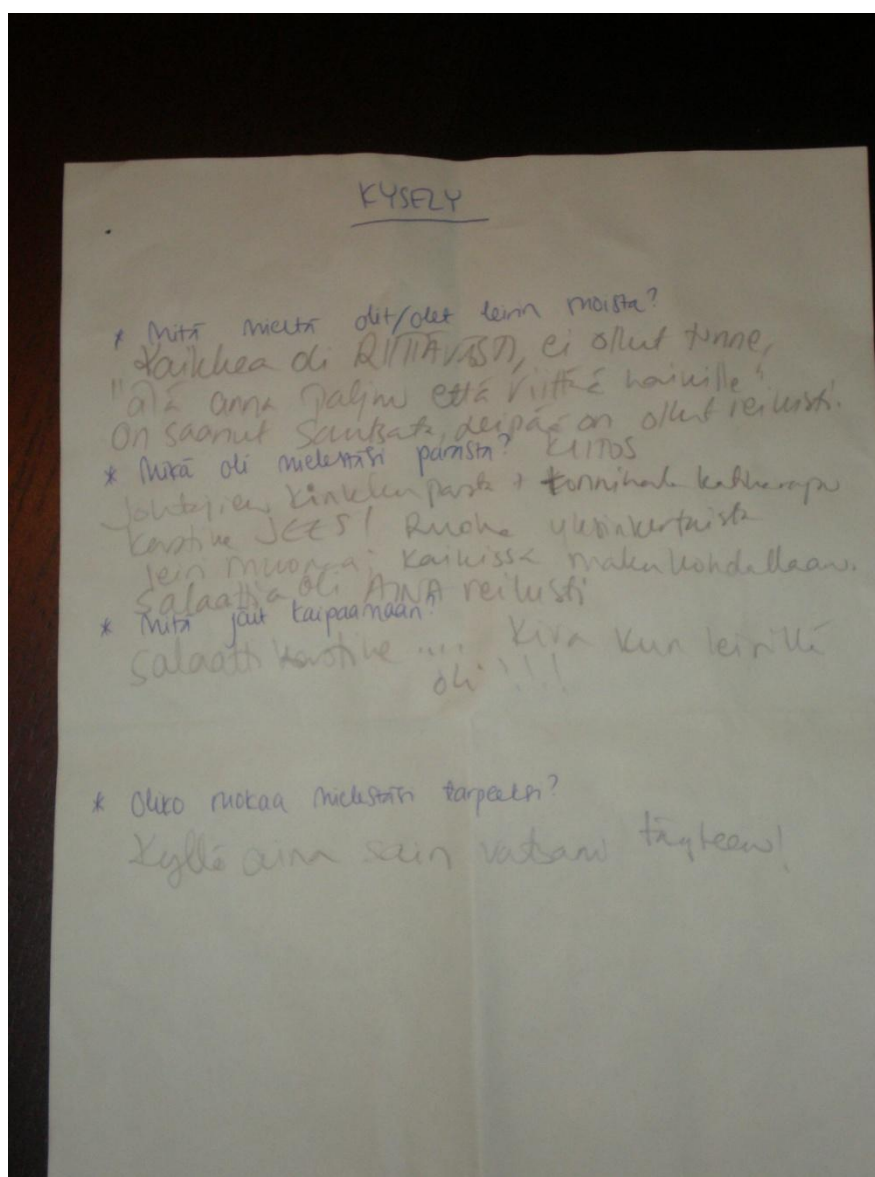 KYSELY
* Mitä mieltä olit/olet leirin ruoista?
Kaikkea oli RIITTÄVÄSTI, ei ollut tunne,
"älä anna paljon että riittää kaikille"
On saanut santsata, leipää on ollut reilusti.
* Mikä oli mielestäsi parasta? KIITOS
Johtajien kinkku pasta +
kastike JEES! Ruoka yksinkertaista
leiri muonaa; kaikissa maku kohdallaan.
Salaattia oli AINA reilusti
* Mitä jäit kaipaamaan?
Salaatti kastike .... Kiva kun leirillä
oli!!!
* Oliko ruokaa mielestäsi tarpeeksi?
Kyllä aina sain vatsani täyteen!